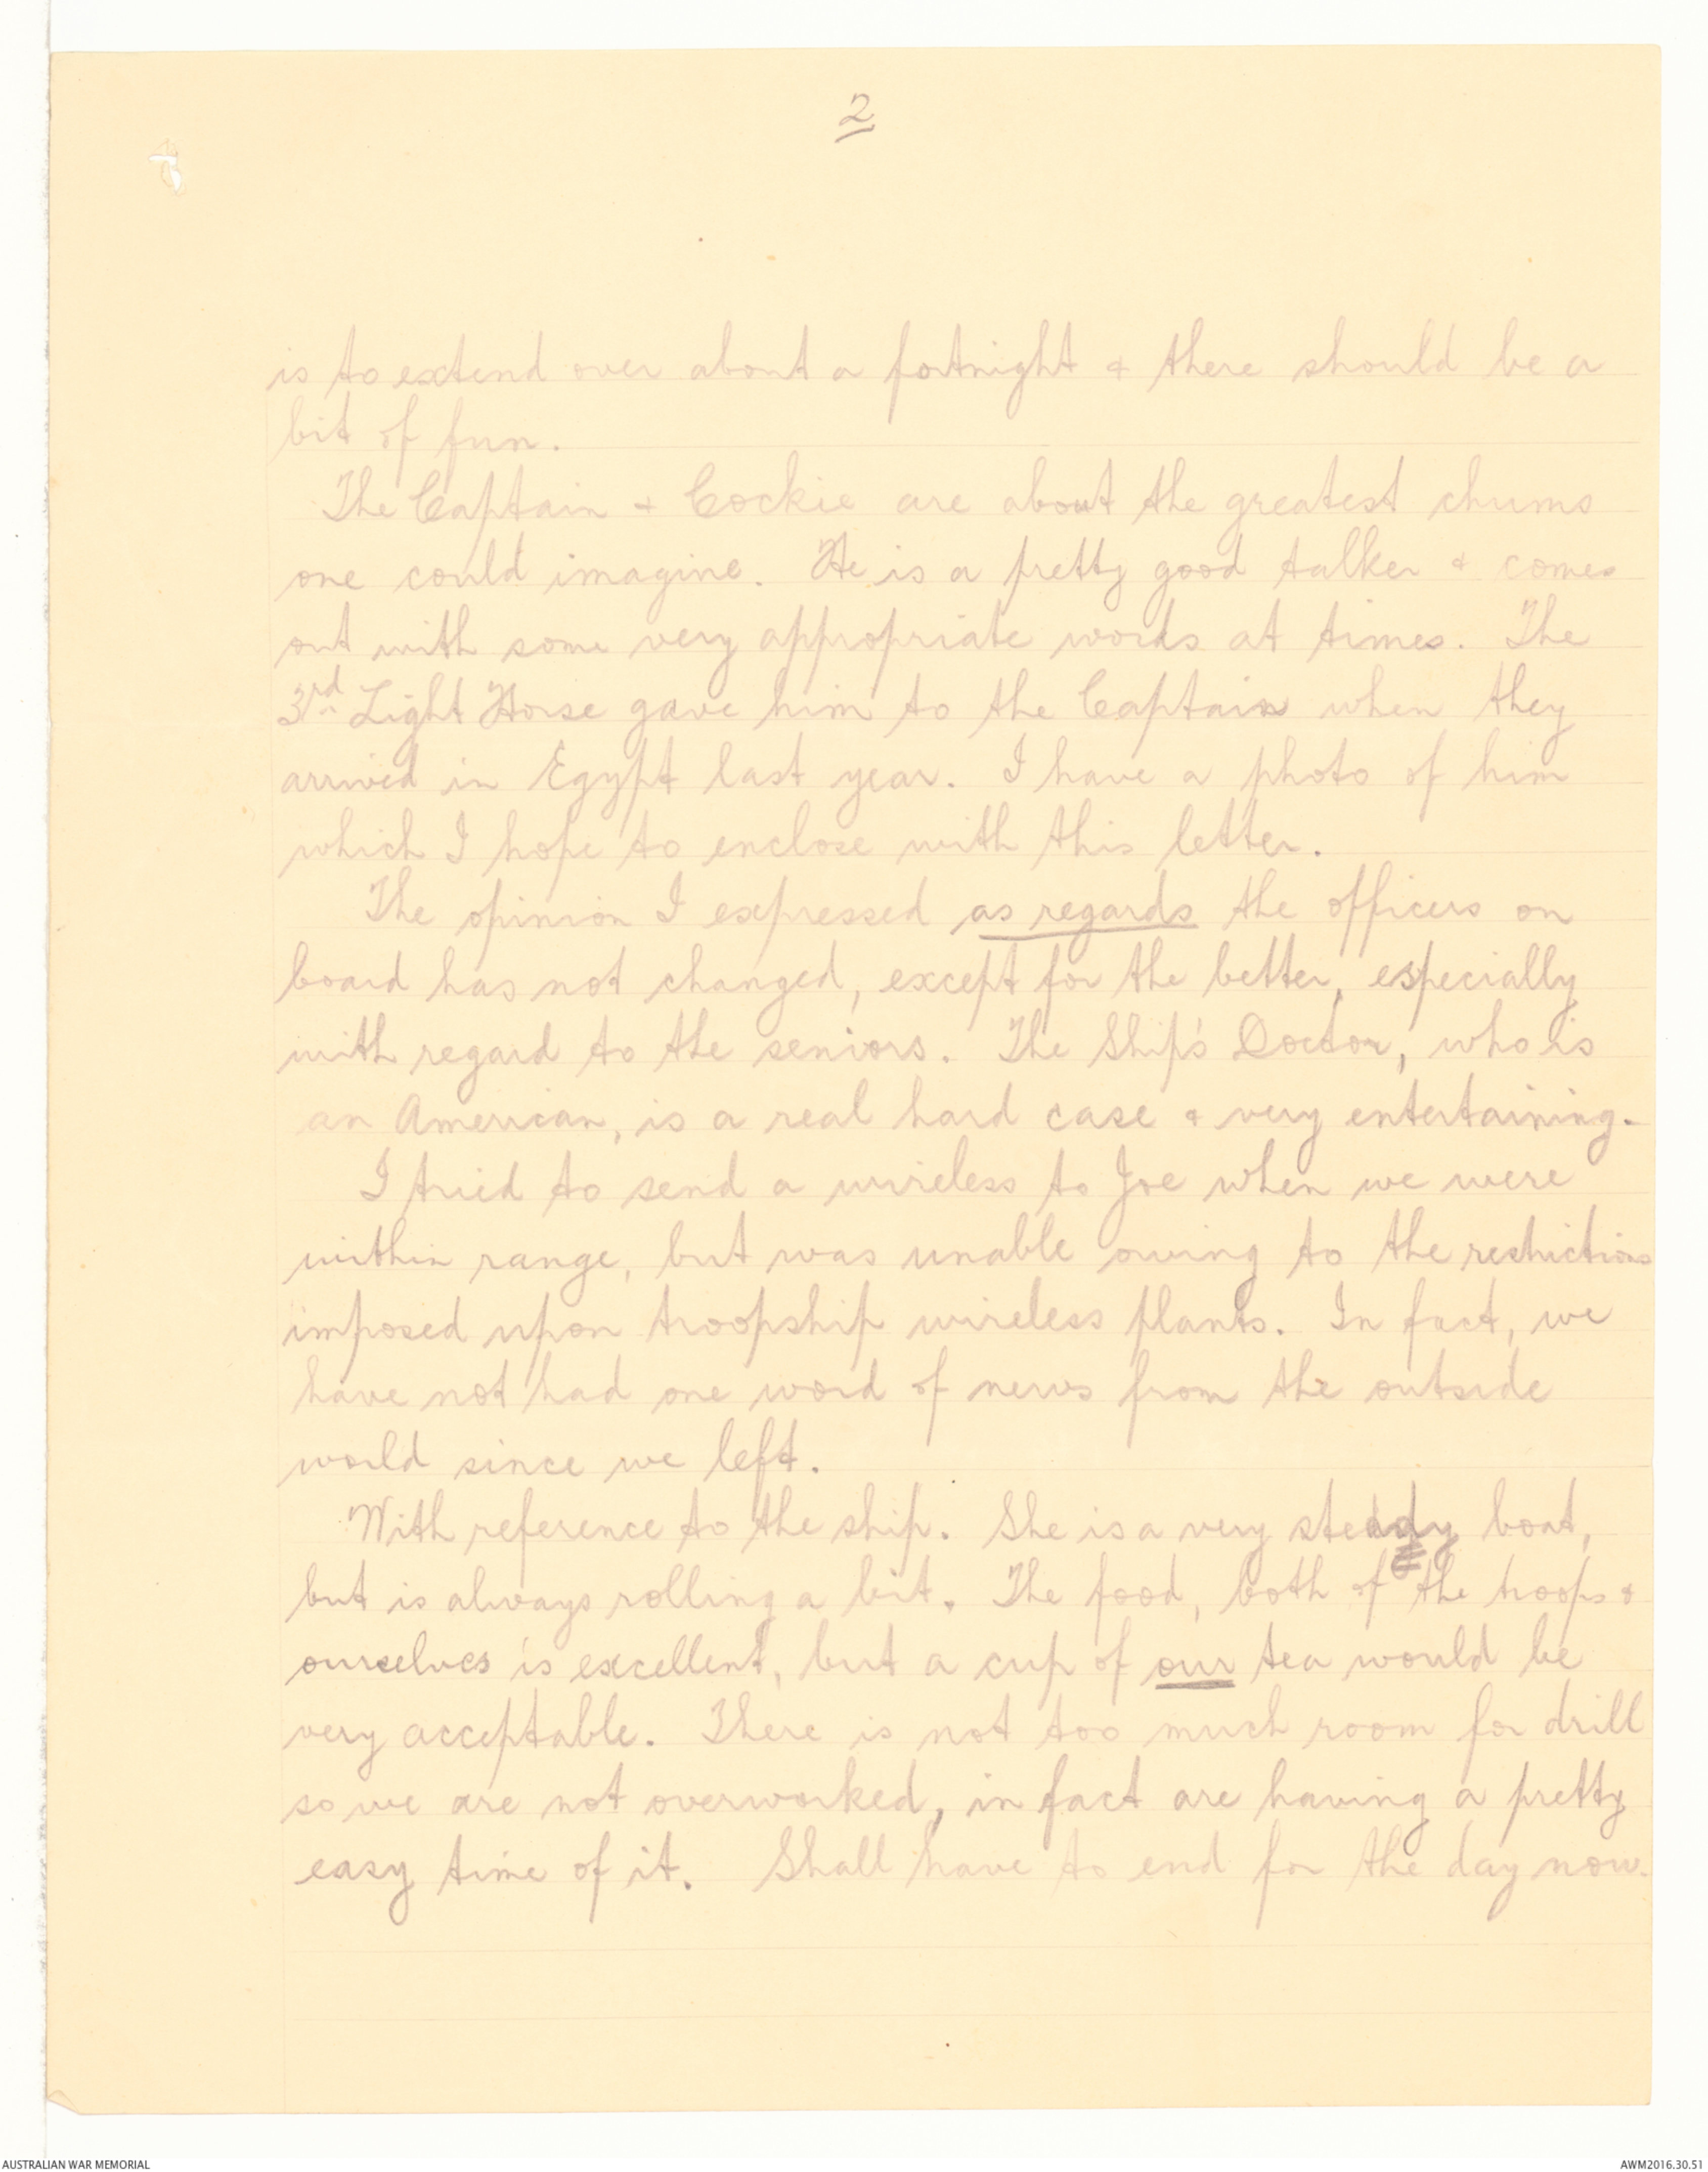 2
is to extend over about a fortnight & there should be a
bit of fun.
The Captain & Cockie are about the greatest chums
one could imagine. He is a pretty good talker & comes
out with some very appropriate words at times. The
3rd Light Horse gave him to the Captain when they
arrived in Egypt last year. I have a photo of him
which I hope to enclose with this letter.
The opinion I expressed as regards the officers on
board has not changed, except for the better, especially
with regard to the seniors. The Ship's Doctor, who is
an American, is a real hard case & very entertaining.
I tried to send a wireless to Joe when we were
within range, but was unable owing to the restrictions
imposed upon troopship wireless plants. In fact, we
have not had one word of news from the outside
world since we left.
With reference to the ship. She is a very steady boat,
but is always rolling a bit. The food, both of the troops &
ourselves is excellent, but a cup of our tea would be
very acceptable. There is not too much room for drill
so we are not overworked, in fact are having a pretty
easy time of it. Shall have to end for the day now.
AUSTRALIAN WAR MEMORIAL
AWM2016.30.51